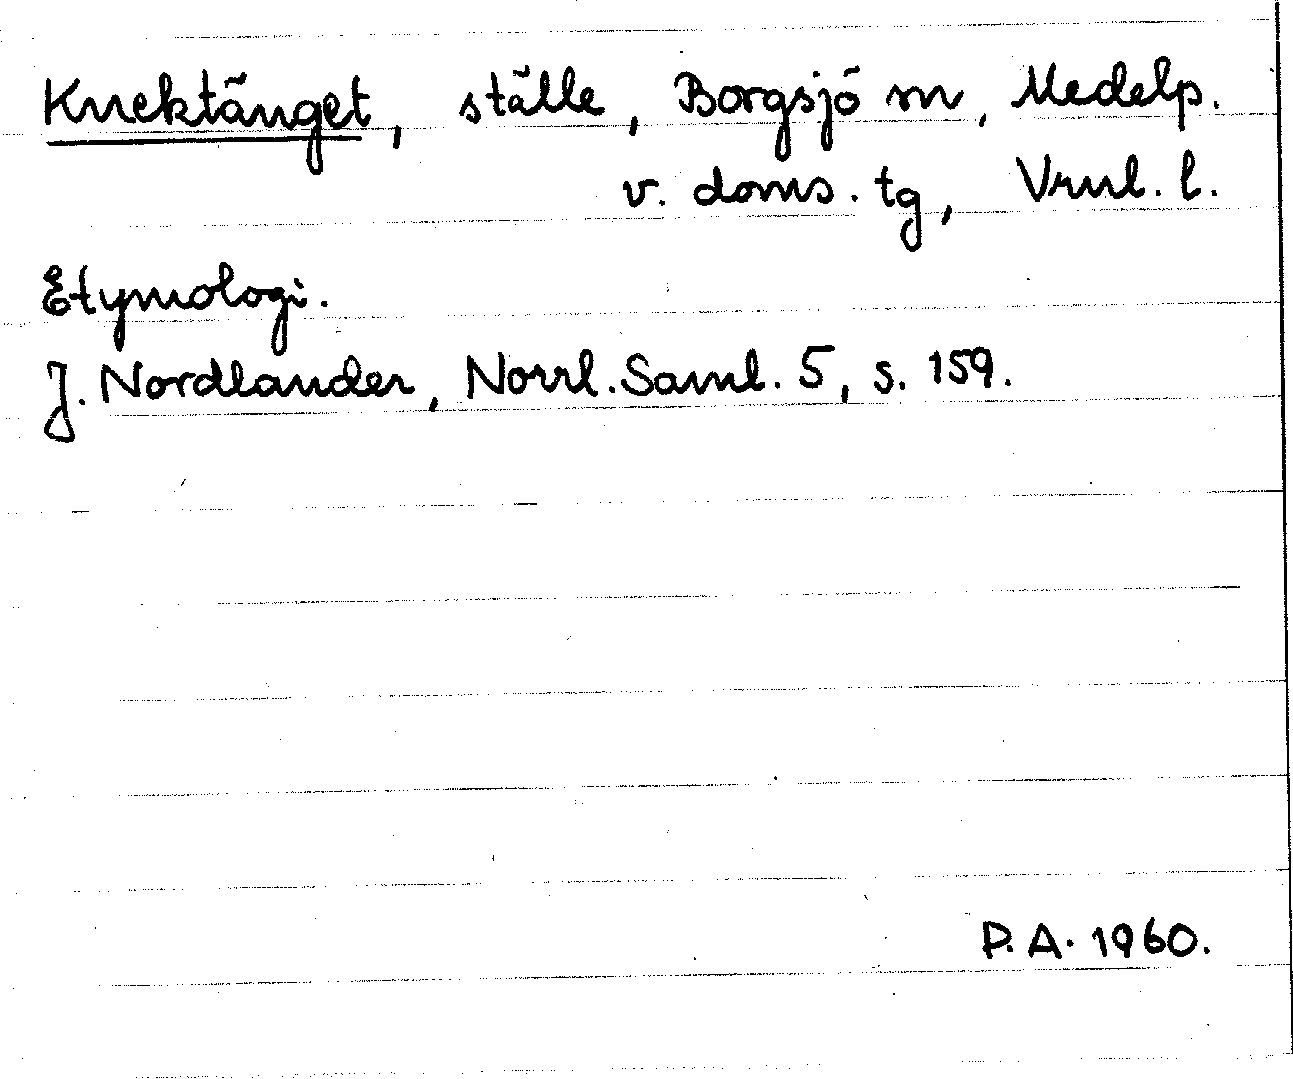 Knektänget, ställe, Borgsjö sn, Medelp.
v. doms. tg, Vrnl. l.
Etymologi.
J. Nordlander, Norrl. Saml. 5, s. 159.
P. A. 1960.